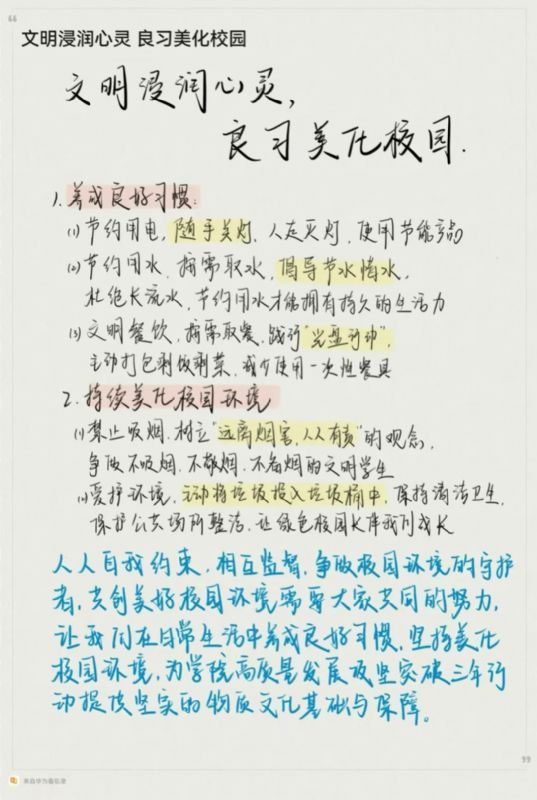 文明浸润心灵 良习美化校园
文明浸润心灵，
良习美化校园.
1. 养成良好习惯：
(1) 节约用电，随手关灯、人走灭灯，使用节能产品
(2) 节约用水，按需取水，倡导节水惜水，
杜绝长流水，节约用水才能拥有持久的生活力
(3) 文明餐饮，按需取餐，践行“光盘行动”，
主动打包剩饭剩菜，减少使用一次性餐具
2. 持续美化校园环境
(1) 禁止吸烟，树立“远离烟害，人人有责”的观念，
争做不吸烟、不敬烟、不劝烟的文明学生
(2) 爱护环境，主动将垃圾投入垃圾桶中，保持清洁卫生，
保护公共场所整洁，让绿色校园长伴我们成长
人人自我约束，相互监督，争做校园环境的守护
者，共创美好校园环境需要大家共同的努力，
让我们在日常生活中养成良好习惯，坚持美化
校园环境，为学院高质量发展及坚实破三年行
动提供坚实的物质文化基础与保障。
来自华为备忘录